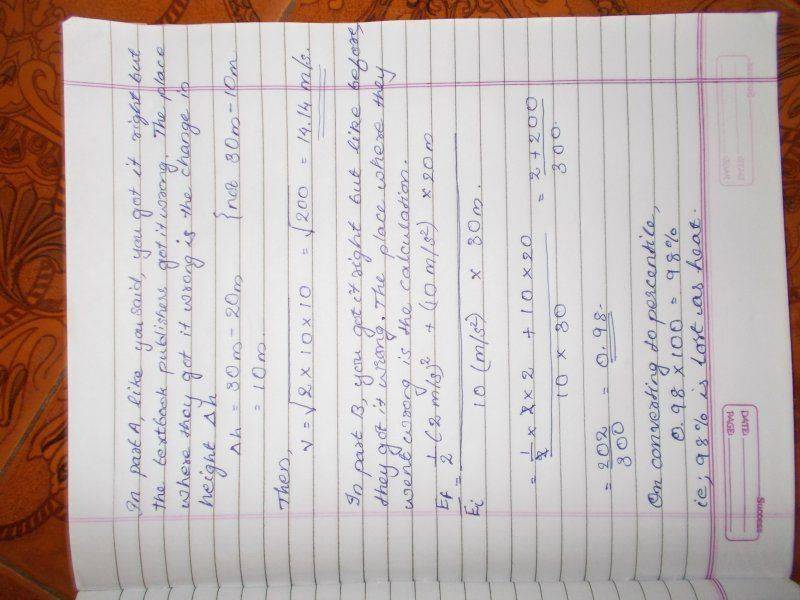 In part A, like you said, you got it right but
the textbook publishers got it wrong. The place
where they got it wrong is the change in
height Δh
Δh = 30m - 20m {not 30m - 10m
= 10m.
Then,
v = √2 × 10 × 10 = √200 = 14.14 m/s.
In part B, you got it right but like before,
they got it wrong. The place where they
went wrong is the calculation.
Ef/Ei = 1/2 (2 m/s)² + (10 m/s²) × 20m
10 (m/s²) × 30m.
= 1/2 × 2 × 2 + 10 × 20 / 10 × 30 = 2 + 200 / 300.
= 202/300 = 0.98.
On converting to percentile,
0.98 × 100 = 98%
ie; 98% is lost as heat.
Success
PAGE:
DATE: